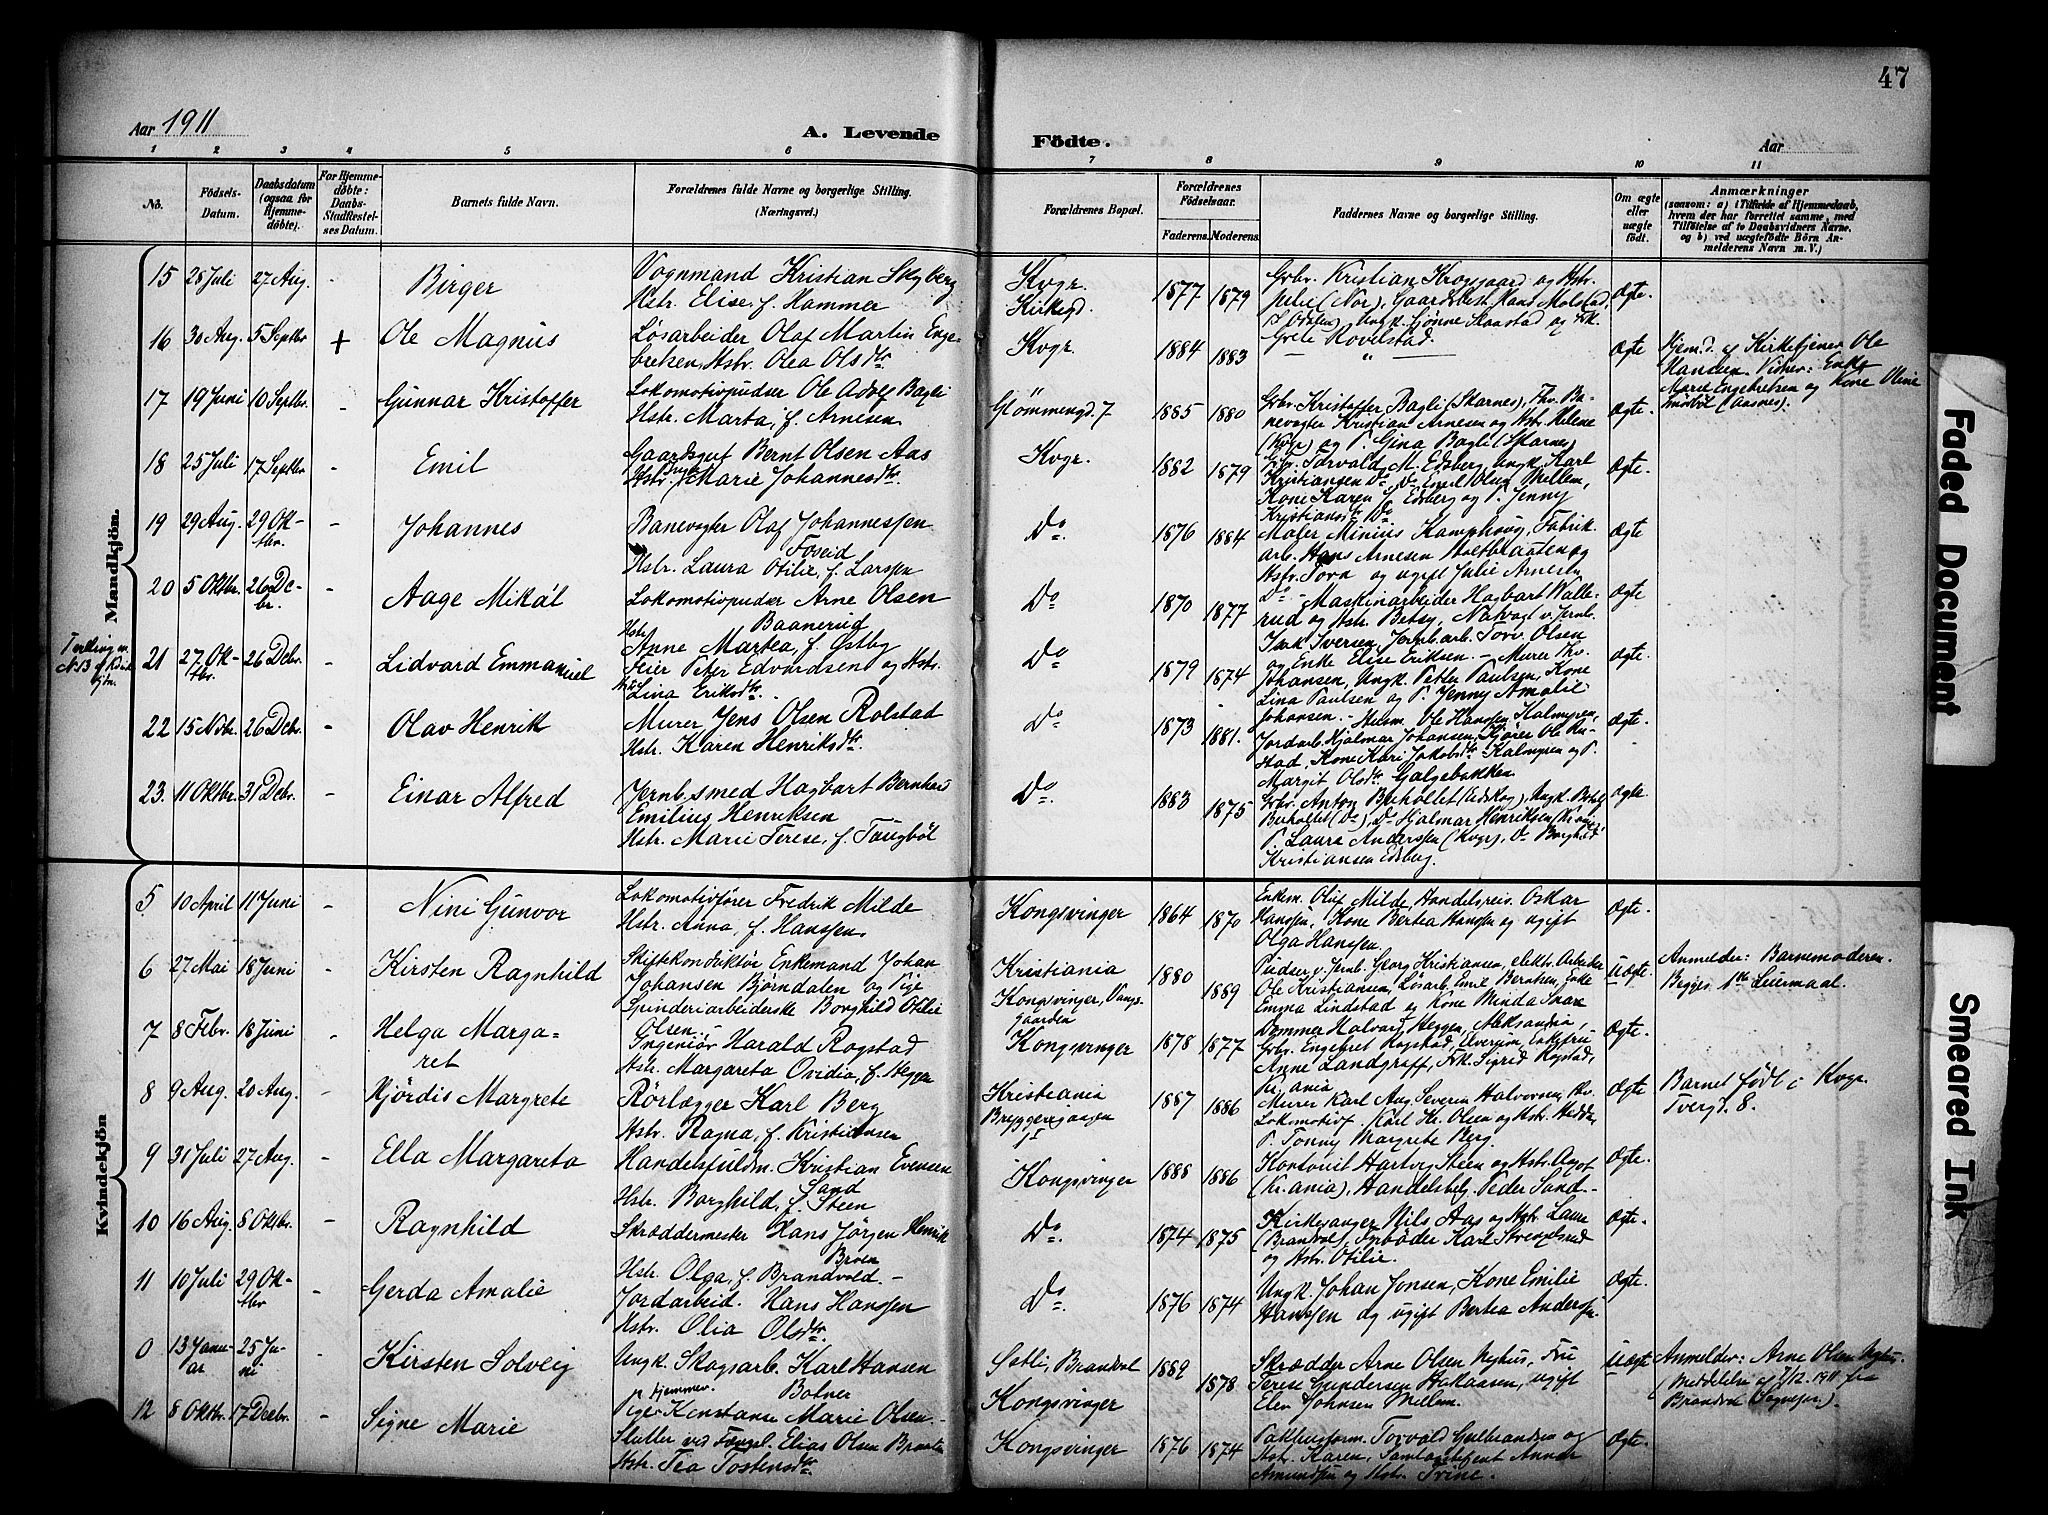 47
Aar 1911
A. Levende
Födte.
Aar
1 2 3 4 5 6 7 8 9 10 11
No.
Födsels-Datum.
Daabsdatum (ogsaa for Hjemmedøbte).
For Hjemmedøbte: Daabs-Stadfæstelses Datum.
Barnets fulde Navn.
Forældrenes fulde Navne og borgerlige Stilling. (Næringsvei.)
Forældrenes Bopæl.
Forældrenes Födselsaar.
Faderens. Moderens.
Faddernes Navne og borgerlige Stilling.
Om ægte eller uægte født.
Anmærkninger
(saasom: a) i Tilfælde af Hjemmedaab, hvem der har forrettet samme, med Tilföielse af to Daabsvidners Navne, og b) ved uægtefödte Börn Anmelderens Navn m. V.)
Mandkjön.
15 28 Juli 27 Aug. - Birger
Vognmand Kristian Skyberg
Hstr. Elise, f. Hammer
Kvgr. Kirkegd. 1877 1879
Grbr. Kristian Kroggaard og Hstr.
Julie (Nor), Gaardsbest. Hans Molstad,
Grete Hovelstad.
Ægte.
16 30 Aug. 5 Septbr + Ole Magnus
Løsarbeider Olaf Martin Engebretsen, Hstr. Olea Olsdtr.
Kvgr. 1884 1883
Ægte
Hjem.d. af Kirketjener Ole
Hansen. Vidner: Enke
Marie Engebretsen og Kone Oline
(Aasnes).
17 19 Juni 10 Septbr. - Gunnar Kristoffer
Lokomotivpudser Ole Adolf Bagli
Hstr. Marta, f. Arnesen
Glommengd. 7 1885 1880
Grbr. Kristoffer Bagli (Skarnes), Fhv. Banevogter Kristian Arnesen og Hstr. Helene
(Kvgr) og P. Gina Bagli (Skarnes)
Ægte.
18 25 Juli 17 Septbr - Emil
Gaardsgut Bernt Olsen Aas
Hstr. Marie Johannesdtr.
Kvgr. 1882 1879
Grbr. Torvald M. Edsberg, Ungk. Karl
Kristiansen Do, Do Emil Olsen Mellem,
Kone Karen J. Edsberg og P. Jenny
Kristiansdtr Do
Ægte.
19 29 Aug. 29 Oktbr. - Johannes
Banevogter Olaf Johannessen Foseid
Hstr. Laura Otilie, f. Larsen
Do. 1876 1884
Maler Minius Kamphoug, Fabrikarb. Hans Arnesen
Hstr. Tora og ugift Julie Arnesen
Ægte
20 5 Oktbr. 26 Debr. - Aage Mikal
Lokomotivpudser Arne Olsen Baanerud
Hstr. Anne Martea, f. Østby
Do 1870 1877
Maskinarbeider Hagbart Wallerud og Hstr. Betsy, Natvagt v. Jernb.
Isak Iversen, Jernb.arb. Torv. Olsen
og Enke Elise Eriksen.
Ægte.
Tvilling m. No 13 af Kvindekjøn.
21 27 Oktbr. 26 Debr. - Lidvard Emmanuel
Feier Peter Edvardsen og Hstr.
Lina Eriksdtr.
Do 1879 1874
Murer Thv. Johansen, Ungk. Petter Paulsen, Kone
Lina Paulsen og P. Jenny Amalie
Johansen.
Ægte.
22 15 Nobr. 26 Debr. - Olav Henrik
Murer Jens Olsen Rolstad
Hstr. Karen Henriksdtr.
Do 1873 1881.
Husm. Ole Hansen Kalmyren,
Jordarb. Hjalmar Johansen, Kjører Ole Rustad, Kone Kari Jakobsdtr Kalmyren og P.
Margit Olsdtr. Galgebakken
Ægte.
23. 11 Oktbr. 31 Debr. - Einar Alfred
Jernb.smed Hagbart Bernhard
Emilius Henriksen
Hstr. Marie Terese, f. Taugbøl
Do. 1883 1875
Grbr. Anton Buhollet (Eidskog), Ungk.
Buhollet (Do), Do Hjalmar Henriksen
P. Laura Anderssen (Kvgr), Do Borghild
Kristiansen Edsberg.
ægte.
Kvindekjön
5 10 April 11 Juni - Nini Gunvor
Lokomotivfører Fredrik Milde
Hstr. Anna, f. Hanssen.
Kongsvinger 1864 1870
Enkem. Oluf Milde, Handelsreis. Oskar
Hanssen, Kone Bertea Hanssen og ugift
Olga Hanssen.
Ægte.
6 27 Mai 18 Juni - Kirsten Ragnhild
Skiftekonduktør Enkemand Johan
Johansen Bjørndalen og Pige
Spinderiarbeiderske Borghild Otilie
Olsen.
Kristiania
Kongsvinger, Vangsgaarden 1880 1889
Pudser v. Jernb. Georg Kristiansen, elektr. Arbeider
Ole Kristiansen, Løsarb. Emil Berntsen, Enke
Emma Lindstad og Kone Minda Snare
Uægte.
Anmelder: Barnemoderen.
Begges 1ste Leiermaal.
7 8 Febr. 18 Juni - Helga Margaret
Ingeniør Harald Rogstad
Hstr. Margareta Ovidia, f. Heggen
Kongsvinger 1878 1877
Dommer Halvard Heggen, Aleksandria,
Grbr. Engebret Rogstad, Elverum, Enkefru
Anne Landgraff, Frk. Sigrid Rogstad,
Kr.ania
Ægte.
8 9 Aug. 20 Aug. - Hjørdis Margrete
Rørlægger Karl Berg
Hstr. Ragna, f. Kristiansen
Kristiania
Bryggerigaagen 1887 1886
Murer Karl Aug. Severin Halvorsen,
Lokomotivf. Karl Kr. Olsen og Hstr. Hedda,
P. Tonny Margrete Berg.
Ægte
Barnet født i Kvgr.
Tvergd. 8.
9 31 Juli 27 Aug. - Ella Margareta
Handelsfuldm. Kristian Evensen Sand
Hstr. Borghild, f. Steen
Kongsvinger 1888 1886
Kontorist Hartvig Steen og Hstr. Aagot
(Kr.ania), Handelsbetj. Peder Sand.
Ægte.
10 16 Aug. 8 Oktbr. - Ragnhild
Skræddermester Hans Jørgen Henrik Broen
Hstr. Olga, f. Brandvold.
Do. 1874 1875
Kirkesanger Nils Aas og Hstr. Laura
(Brandval), Fyrbøder Karl Strengelsrud
og Hstr. Otilie.
Ægte.
11 10 Juli 29 Oktbr - Gerda Amalie
Jordarbeid. Hans Hanssen
Hstr. Olia Olsdtr.
Do. 1876 1874
Ungk. Johan Jonsen, Kone Emilie
Hanssen og ugift Bertea Andersen.
Ægte.
0 13 Januar 25 Juni - Kirsten Solveig
Ungk. Skogsarb. Karl Hansen Botner
Pige hjemmev. Konstanse Marie Olsen.
Sætli, Brandval
Kongsvinger 1889 1878
Skrædder Arne Olsen Nyhus, Fru
Terese Gundersen Hakaasen, ugift
Elen Johnsen Mellem.
Uægte
Anmelder: Arne Olsen Nyhus.
(Meddelelse af 7/12. 1911 fra
Brandval Sognepr.).
12 8 Oktbr. 17 Decbr. - Signe Marie
Slutter ved Fængsl. Elias Olsen Braaten
Hstr. Tea Tostensdtr.
Kongsvinger 1876 1874
Pakhusform. Torvald Gulbrandsen og
Hstr. Karen, Samlagsbetjent Anner
Amundsen og Hstr. Trine.
Ægte.
Faded Document
Smeared Ink